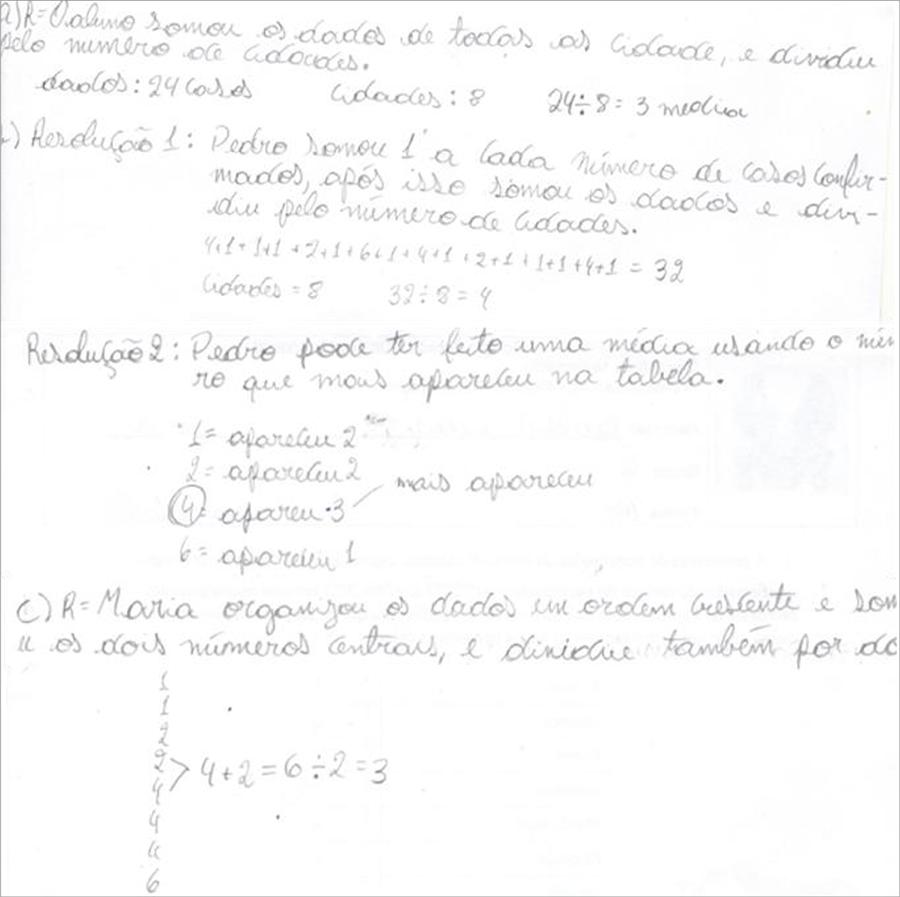 a) R= O aluno somou os dados de todas as cidade, e dividiu
pelo numero de cidades.
dados: 24 casos cidades: 8 24÷8= 3 media
) Resolução 1: Pedro somou 1 a cada número de casos confir-
mados, após isso somou os dados e divi-
diu pelo número de cidades.
4+1+1+1+2+1+6+1+4+1+2+1+1+1+4+1 = 32
cidades = 8 32÷8=4
Resolução 2: Pedro pode ter feito uma média usando o núm
ro que mais apareceu na tabela.
1= apareceu 2
2= apareceu 2
4= apareu 3 mais apareceu
6= apareceu 1
C) R= Maria organizou os dados em ordem crescente e som
u os dois números centrais, e dividiu também por do
1
1
2
2 > 4+2=6÷2=3
4
4
4
6